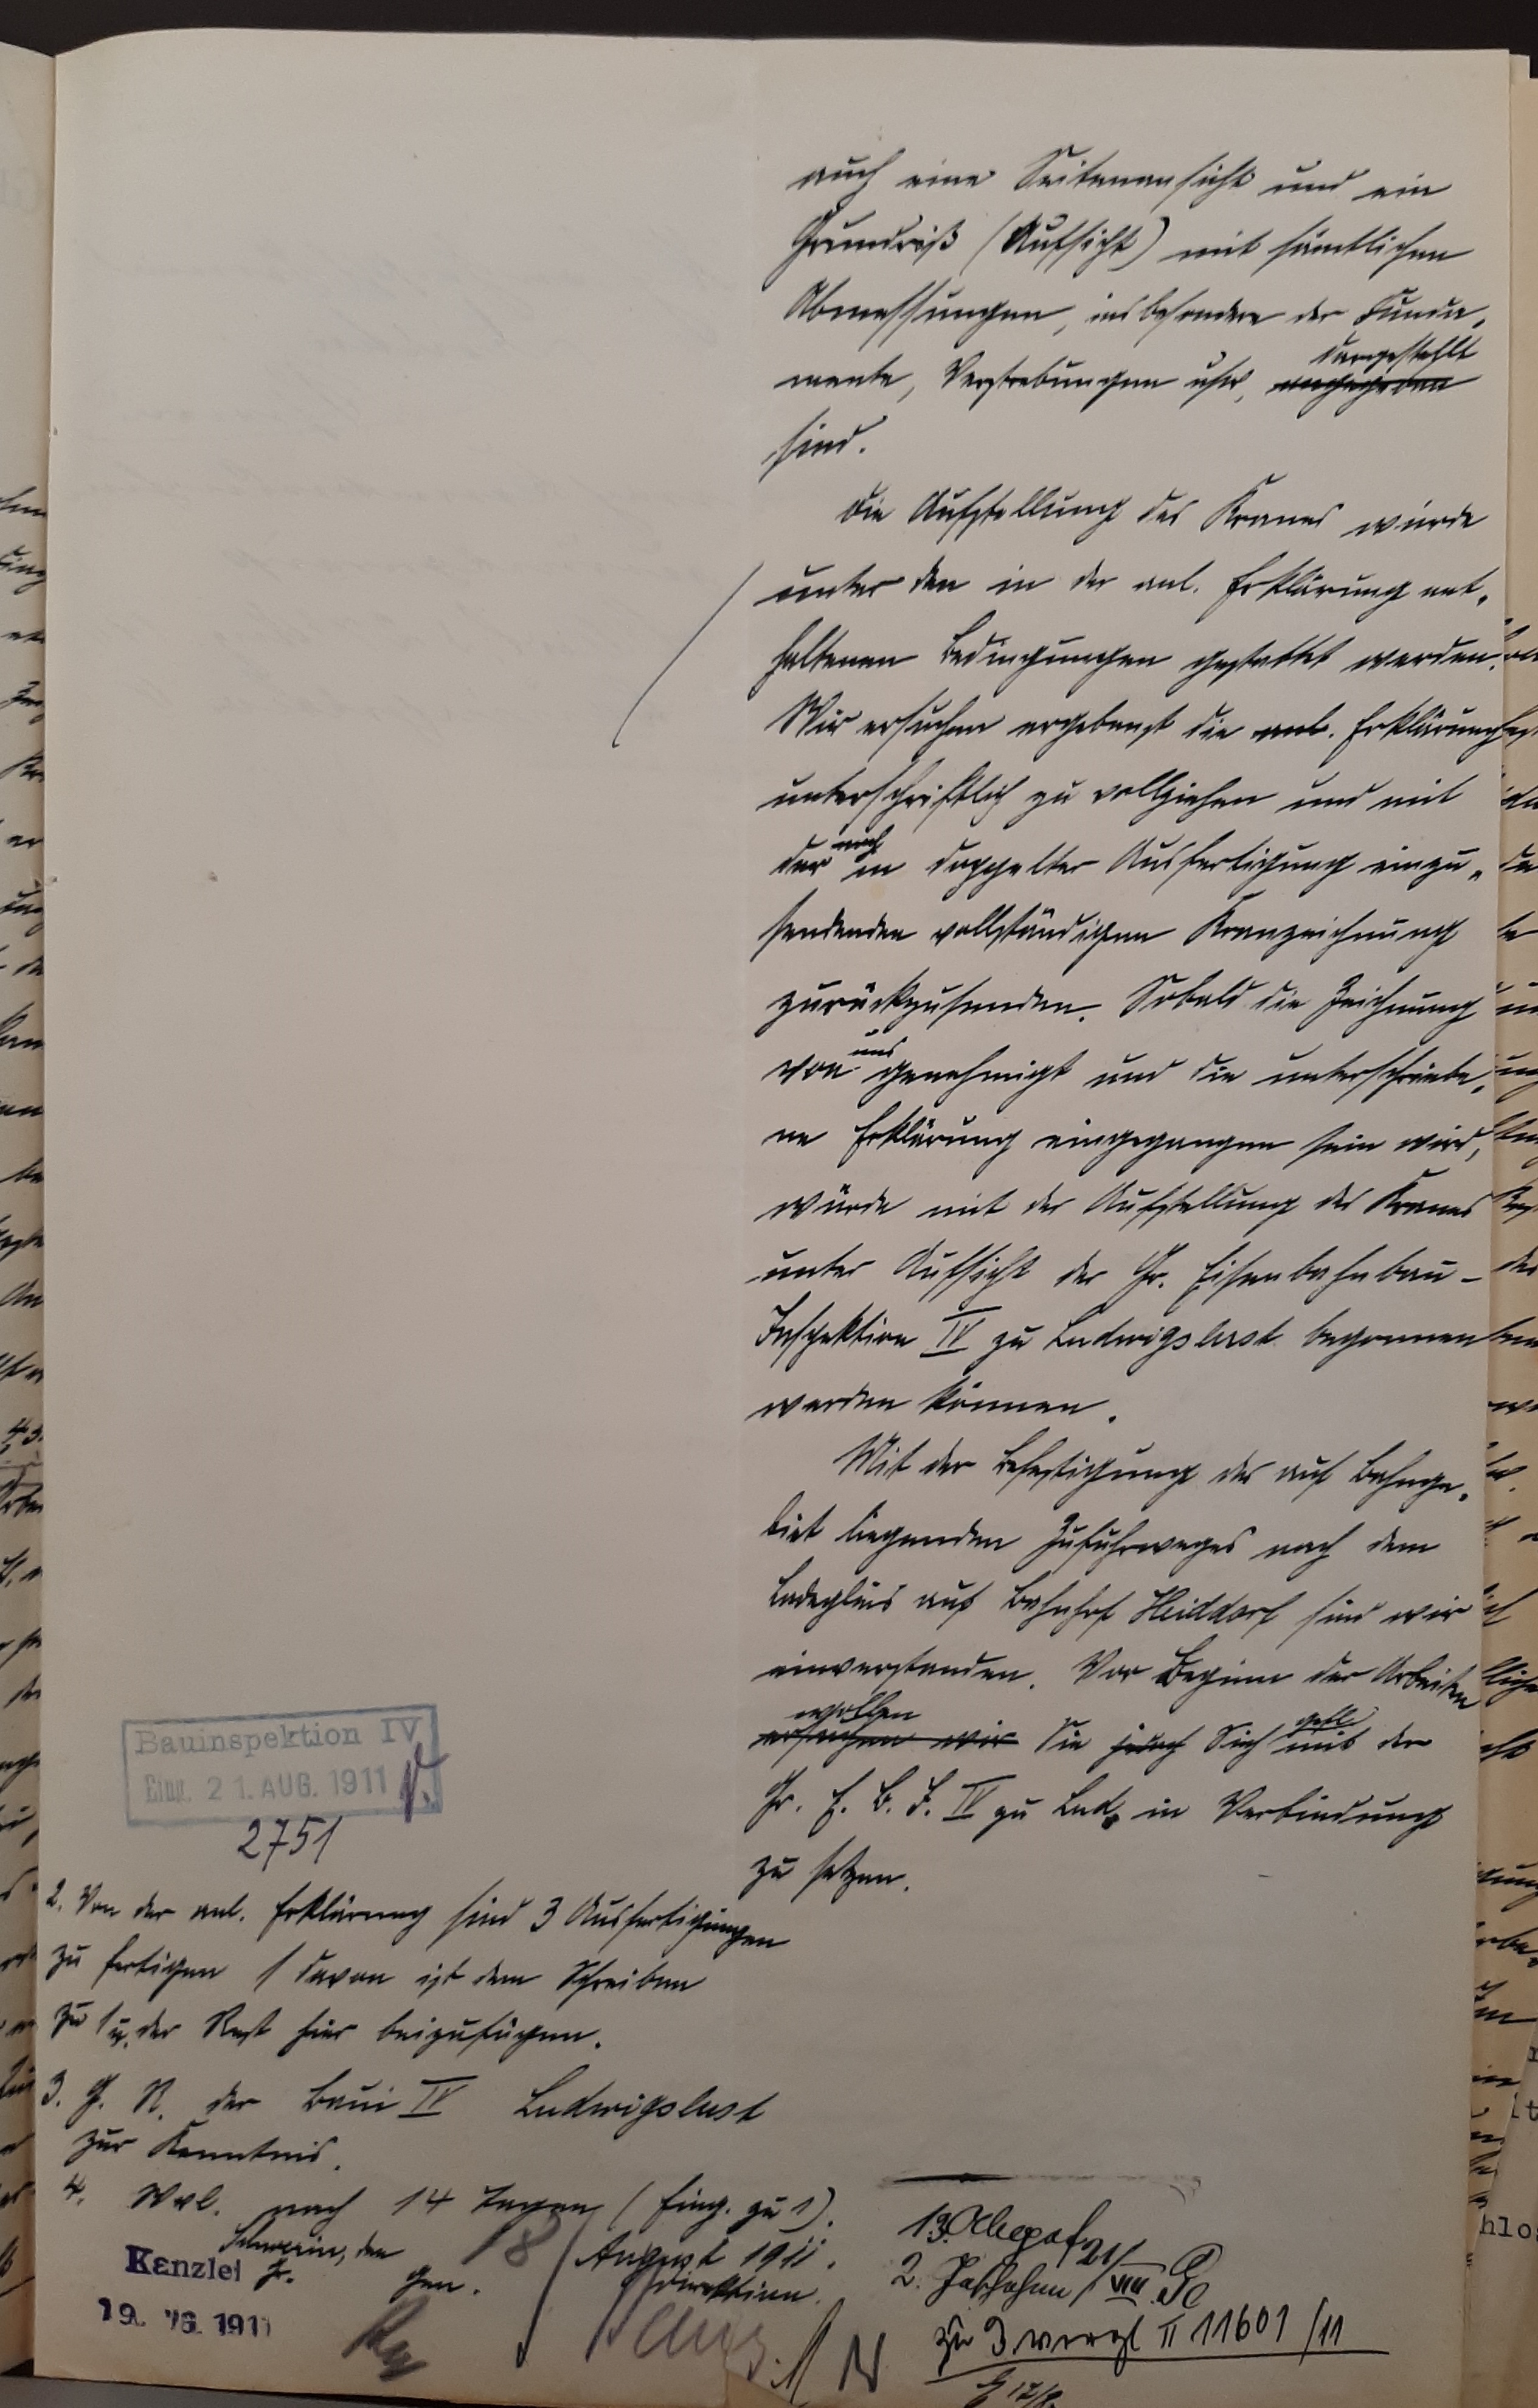 auch eine Seitenansicht und ein
Grundriß (Aufsicht) mit sämtlichen
Abmessungen, insbesondere der Funda-
mente, Verstrebungen usw. angegeben dargestellt
sind.
Die Aufstellung des Kranes würde
unter den in der anl. Erklärung ent-
haltenen Bedingungen gestattet werden.
Wir ersuchen ergebenst die anl. Erklärung
unterschriftlich zu vollziehen und mit
der noch in doppelter Ausfertigung einzu-
sendenden vollständigen Kranzeichnung
zurückzusenden. Sobald die Zeichnung
von uns genehmigt und die unterschriebe-
ne Erklärung eingegangen sein wird,
würde mit der Aufstellung des Kranes
unter Aufsicht der Gr. Eisenbahnbau-
Inspektion IV zu Ludwigslust begonnen
werden können.
Mit der Befestigung des auf Bahnge-
biet liegenden Zufuhrweges nach dem
Ladegleis auf Bahnhof Heiddorf sind wir
einverstanden. Vor Beginn der Arbeiten
ersuchen wir wollen Sie jedoch Sich gefl. mit der
Gr. E. B. I. IV zu Lud. in Verbindung
zu setzen.
Bauinspektion IV
Eing. 21. AUG. 1911
2751
2. Von der anl. Erklärung sind 3 Ausfertigungen
zu fertigen 1 davon ist dem Schreiben
zu 1 u. der Rest hier beizufügen.
3. G. R. der Baui IV Ludwigslust
zur Kenntnis.
4. Wvl. nach 14 Tagen (Eing. zu 1).
Schwerin, den 18 August 1911.
Kanzlei
G. Gen. Direktion.
19. 1911
21/VIII
zu 3 vergl II 11601/11